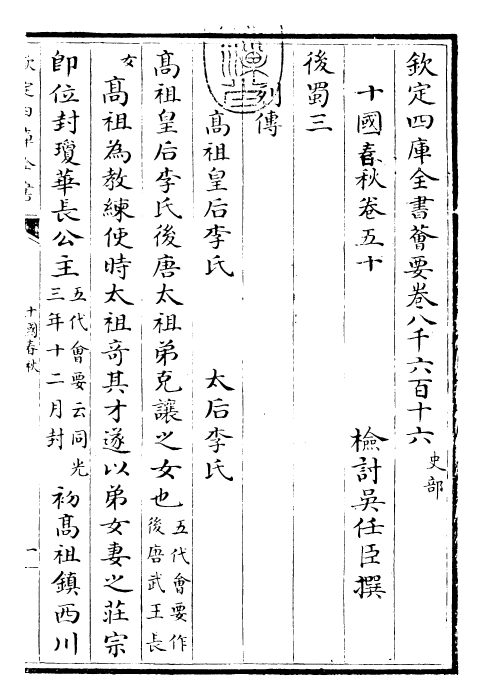 欽定四庫全書薈要卷八千六百十六 史部
十國春秋卷五十
檢討吳任臣撰
後蜀三
列傳
高祖皇后李氏 太后李氏
高祖皇后李氏後唐太祖弟克讓之女也五代會要作後唐武王長
女高祖為教練使時太祖奇其才遂以弟女妻之莊宗
即位封瓊華長公主五代會要云同光三年十二月封初高祖鎮西川
十國春秋
一